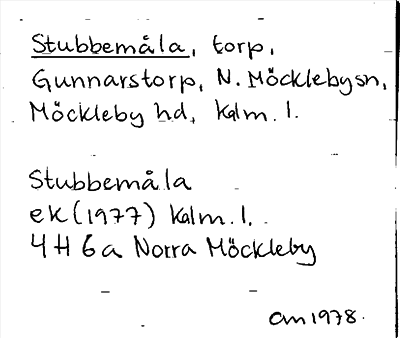 Stubbemåla, torp,
Gunnarstorp, N. Möcklebysn,
Möckleby hd, Kalm. l.
Stubbemåla
ek (1977) Kalm. l.
4H 6a Norra Möckleby
am 1978.